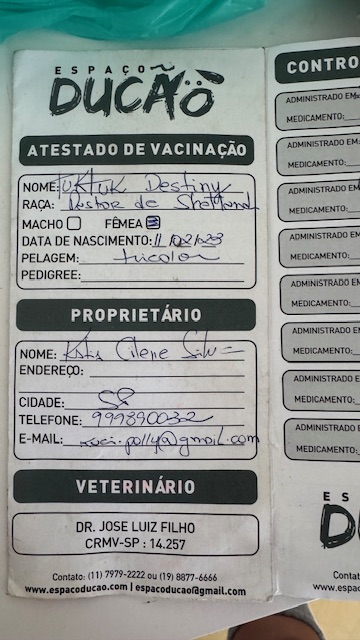 ESPAÇO
DUCÃO
ATESTADO DE VACINAÇÃO
NOME: Tuktuk Destiny
RAÇA: Pastor de Shetland
MACHO FÊMEA
DATA DE NASCIMENTO: 11/02/23
PELAGEM: tricolor
PEDIGREE:
PROPRIETÁRIO
NOME: Cilene Silva
ENDEREÇO:
CIDADE:
TELEFONE: 999890032
E-MAIL: @gmail.com
VETERINÁRIO
DR. JOSE LUIZ FILHO
CRMV-SP : 14.257
Contato: (11) 7979-2222 ou (19) 8877-6666
www.espacoducao.com | espacoducao@gmail.com
CONTRO
ADMINISTRADO EM:
MEDICAMENTO:
ADMINISTRADO EM:
MEDICAMENTO:
ADMINISTRADO EM
MEDICAMENTO:
ADMINISTRADO EM
MEDICAMENTO:
ADMINISTRADO EM
MEDICAMENTO:
ADMINISTRADO E
MEDICAMENTO:
ADMINISTRADO E
MEDICAMENTO:
ADMINISTRADO E
MEDICAMENTO:
E S
D
Conta
www.espa